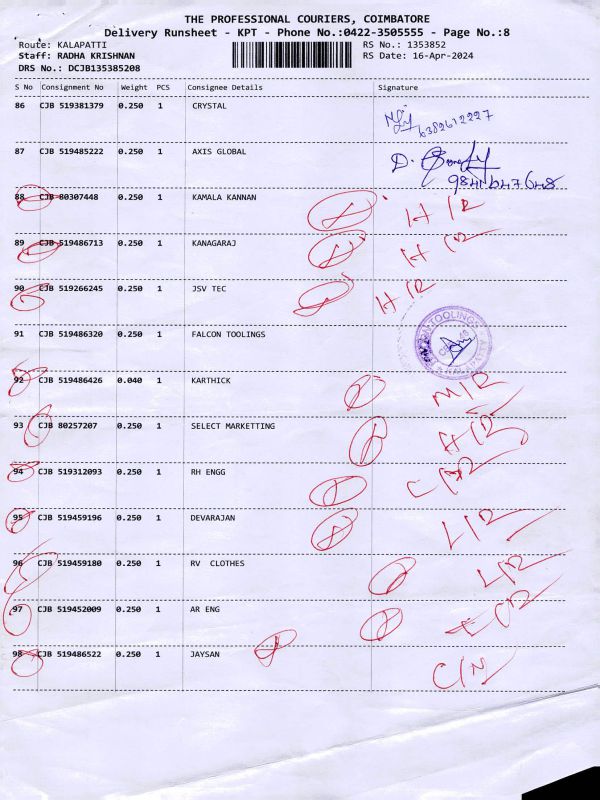 THE PROFESSIONAL COURIERS, COIMBATORE
Delivery Runsheet - KPT - Phone No.:0422-3505555 - Page No.:8
Route: KALAPATTI RS No.: 1353852
Staff: RADHA KRISHNAN RS Date: 16-Apr-2024
DRS No.: DCJB135385208
S No Consignment No Weight PCS Consignee Details Signature
86 CJB 519381379 0.250 1 CRYSTAL
6382612227
87 CJB 519485222 0.250 1 AXIS GLOBAL D.
88 CJB 80307448 0.250 1 KAMALA KANNAN H/R
89 CJB 519486713 0.250 1 KANAGARAJ H/R
90 CJB 519266245 0.250 1 JSV TEC H/R
91 CJB 519486320 0.250 1 FALCON TOOLINGS TOOLINGS
92 CJB 519486426 0.040 1 KARTHICK M/R
93 CJB 80257207 0.250 1 SELECT MARKETTING
94 CJB 519312093 0.250 1 RH ENGG
95 CJB 519459196 0.250 1 DEVARAJAN L/R
96 CJB 519459180 0.250 1 RV CLOTHES L/R
97 CJB 519452009 0.250 1 AR ENG
98 CJB 519486522 0.250 1 JAYSAN C/N